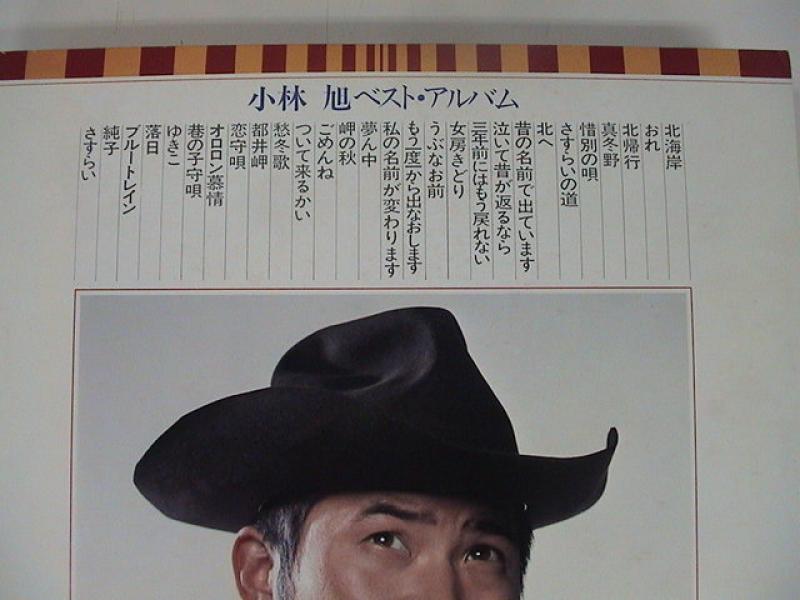 小林 旭ベスト・アルバム
北海岸
おれ
北帰行
真冬野
惜別の唄
さすらいの道
北へ
昔の名前で出ています
泣いて昔が返るなら
三年前にはもう戻れない
女房きどり
うぶなお前
もう一度一から出なおします
私の名前が変わります
夢ん中
岬の秋
ごめんね
ついて来るかい
愁冬歌
都井岬
恋守唄
オロロン慕情
巷の子守唄
ゆきこ
落日
ブルートレイン
純子
さすらい